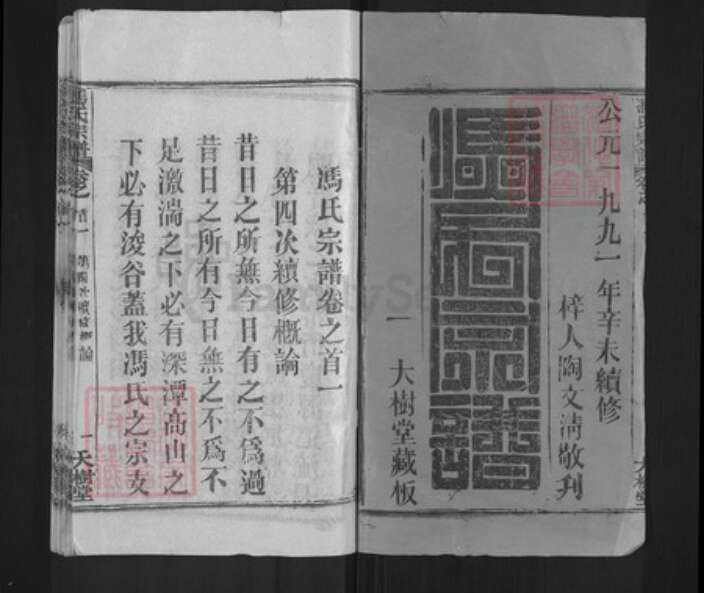 公元一九九一年辛未續修
梓人陶文清敬刋
馮氏宗譜
一 大樹堂藏板
馮氏宗譜卷之首一
第四次續修槪論
昔日之所無今日有之不爲過
昔日之所有今日無之不爲不
足激湍之下必有深潭高山之
下必有浚谷蓋我馮氏之宗支
馮氏宗譜 卷之首一 第四次續修槪論 一 大樹堂